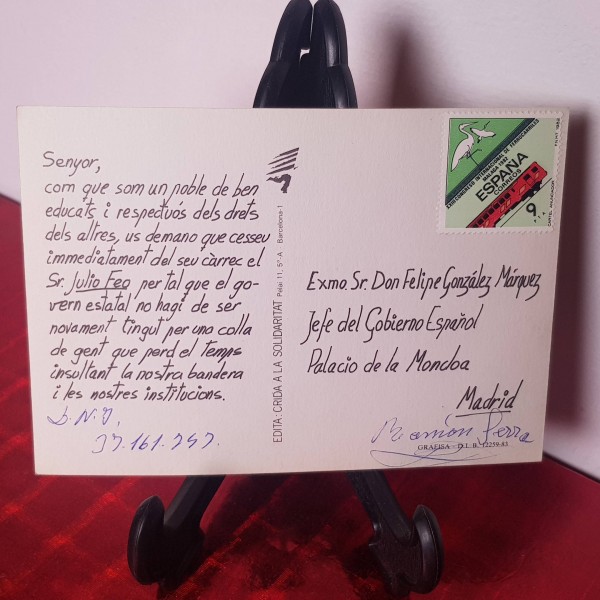 Senyor,
com que som un poble de ben
educats i respectuós dels drets
dels altres, us demano que cesseu
immediatament del seu càrrec el
Sr. Julio Feo per tal que el go-
vern estatal no hagi de ser
novament tingut per una colla
de gent que perd el temps
insultant la nostra bandera
i les nostres institucions.
D.N.I.
37.161.747.
EDITA: CRIDA A LA SOLIDARITAT Pelai 11, 5è-A Barcelona-1
XXIII CONGRESO INTERNACIONAL DE FERROCARRILES
MALAGA 1982
ESPAÑA
CORREOS
9
F.N.M.T. 1982
Exmo. Sr. Don Felipe González Márquez
Jefe del Gobierno Español
Palacio de la Moncloa
Madrid
Ramón Serra
GRAFISA - D.L. B. 12259-83